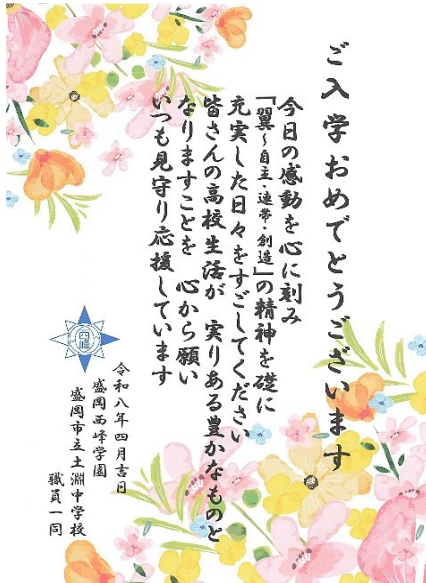 ご入学おめでとうございます
今日の感動を心に刻み
「翼～自主・連帯・創造」の精神を礎に
充実した日々をすごしてください
皆さんの高校生活が 実りある豊かなものと
なりますことを 心から願い
いつも見守り応援しています
令和八年四月吉日
盛岡西峰学園
盛岡市立土淵中学校
職員一同
西峰